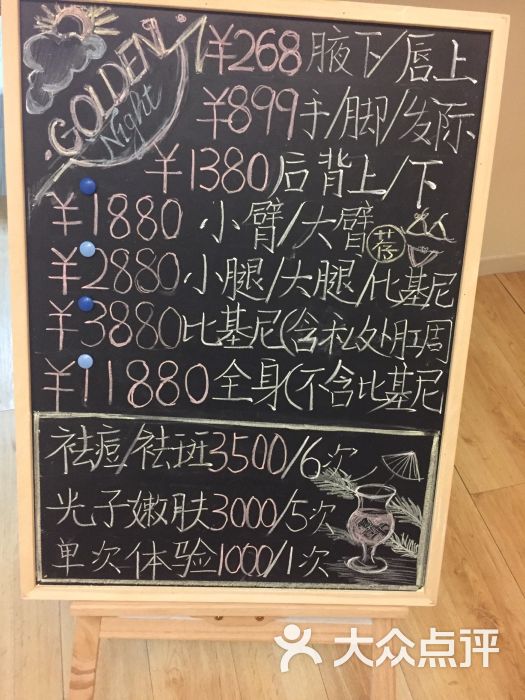 GOLDEN
Night
¥268 腋下/唇上
¥899 手/脚/发际
¥1380 后背上/下
¥1880 小臂/大臂
荐
¥2880 小腿/大腿/比基尼
¥3880 比基尼(含私处肛周
¥11880 全身(不含比基尼
祛痘/祛斑3500/6次
光子嫩肤3000/5次
单次体验1000/1次
大众点评